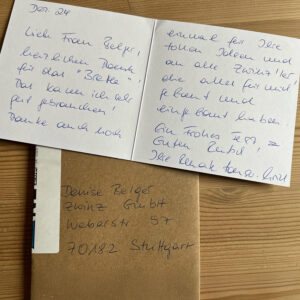 Dez. 24
Liebe Frau Belger,
herzlichen Dank
für das "Brett"!
Das kann ich sehr
gut gebrauchen!
Danke auch noch
einmal für Ihre
tollen Ideen und
an alle Zwinz'ler,
die alles für mich
gebaut und
eingebaut haben.
Ein Frohes Fest &
Guten Rutsch!
Ihre Renate
Denise Belger
Zwinz GmbH
Weberstr. 57
70182 Stuttgart